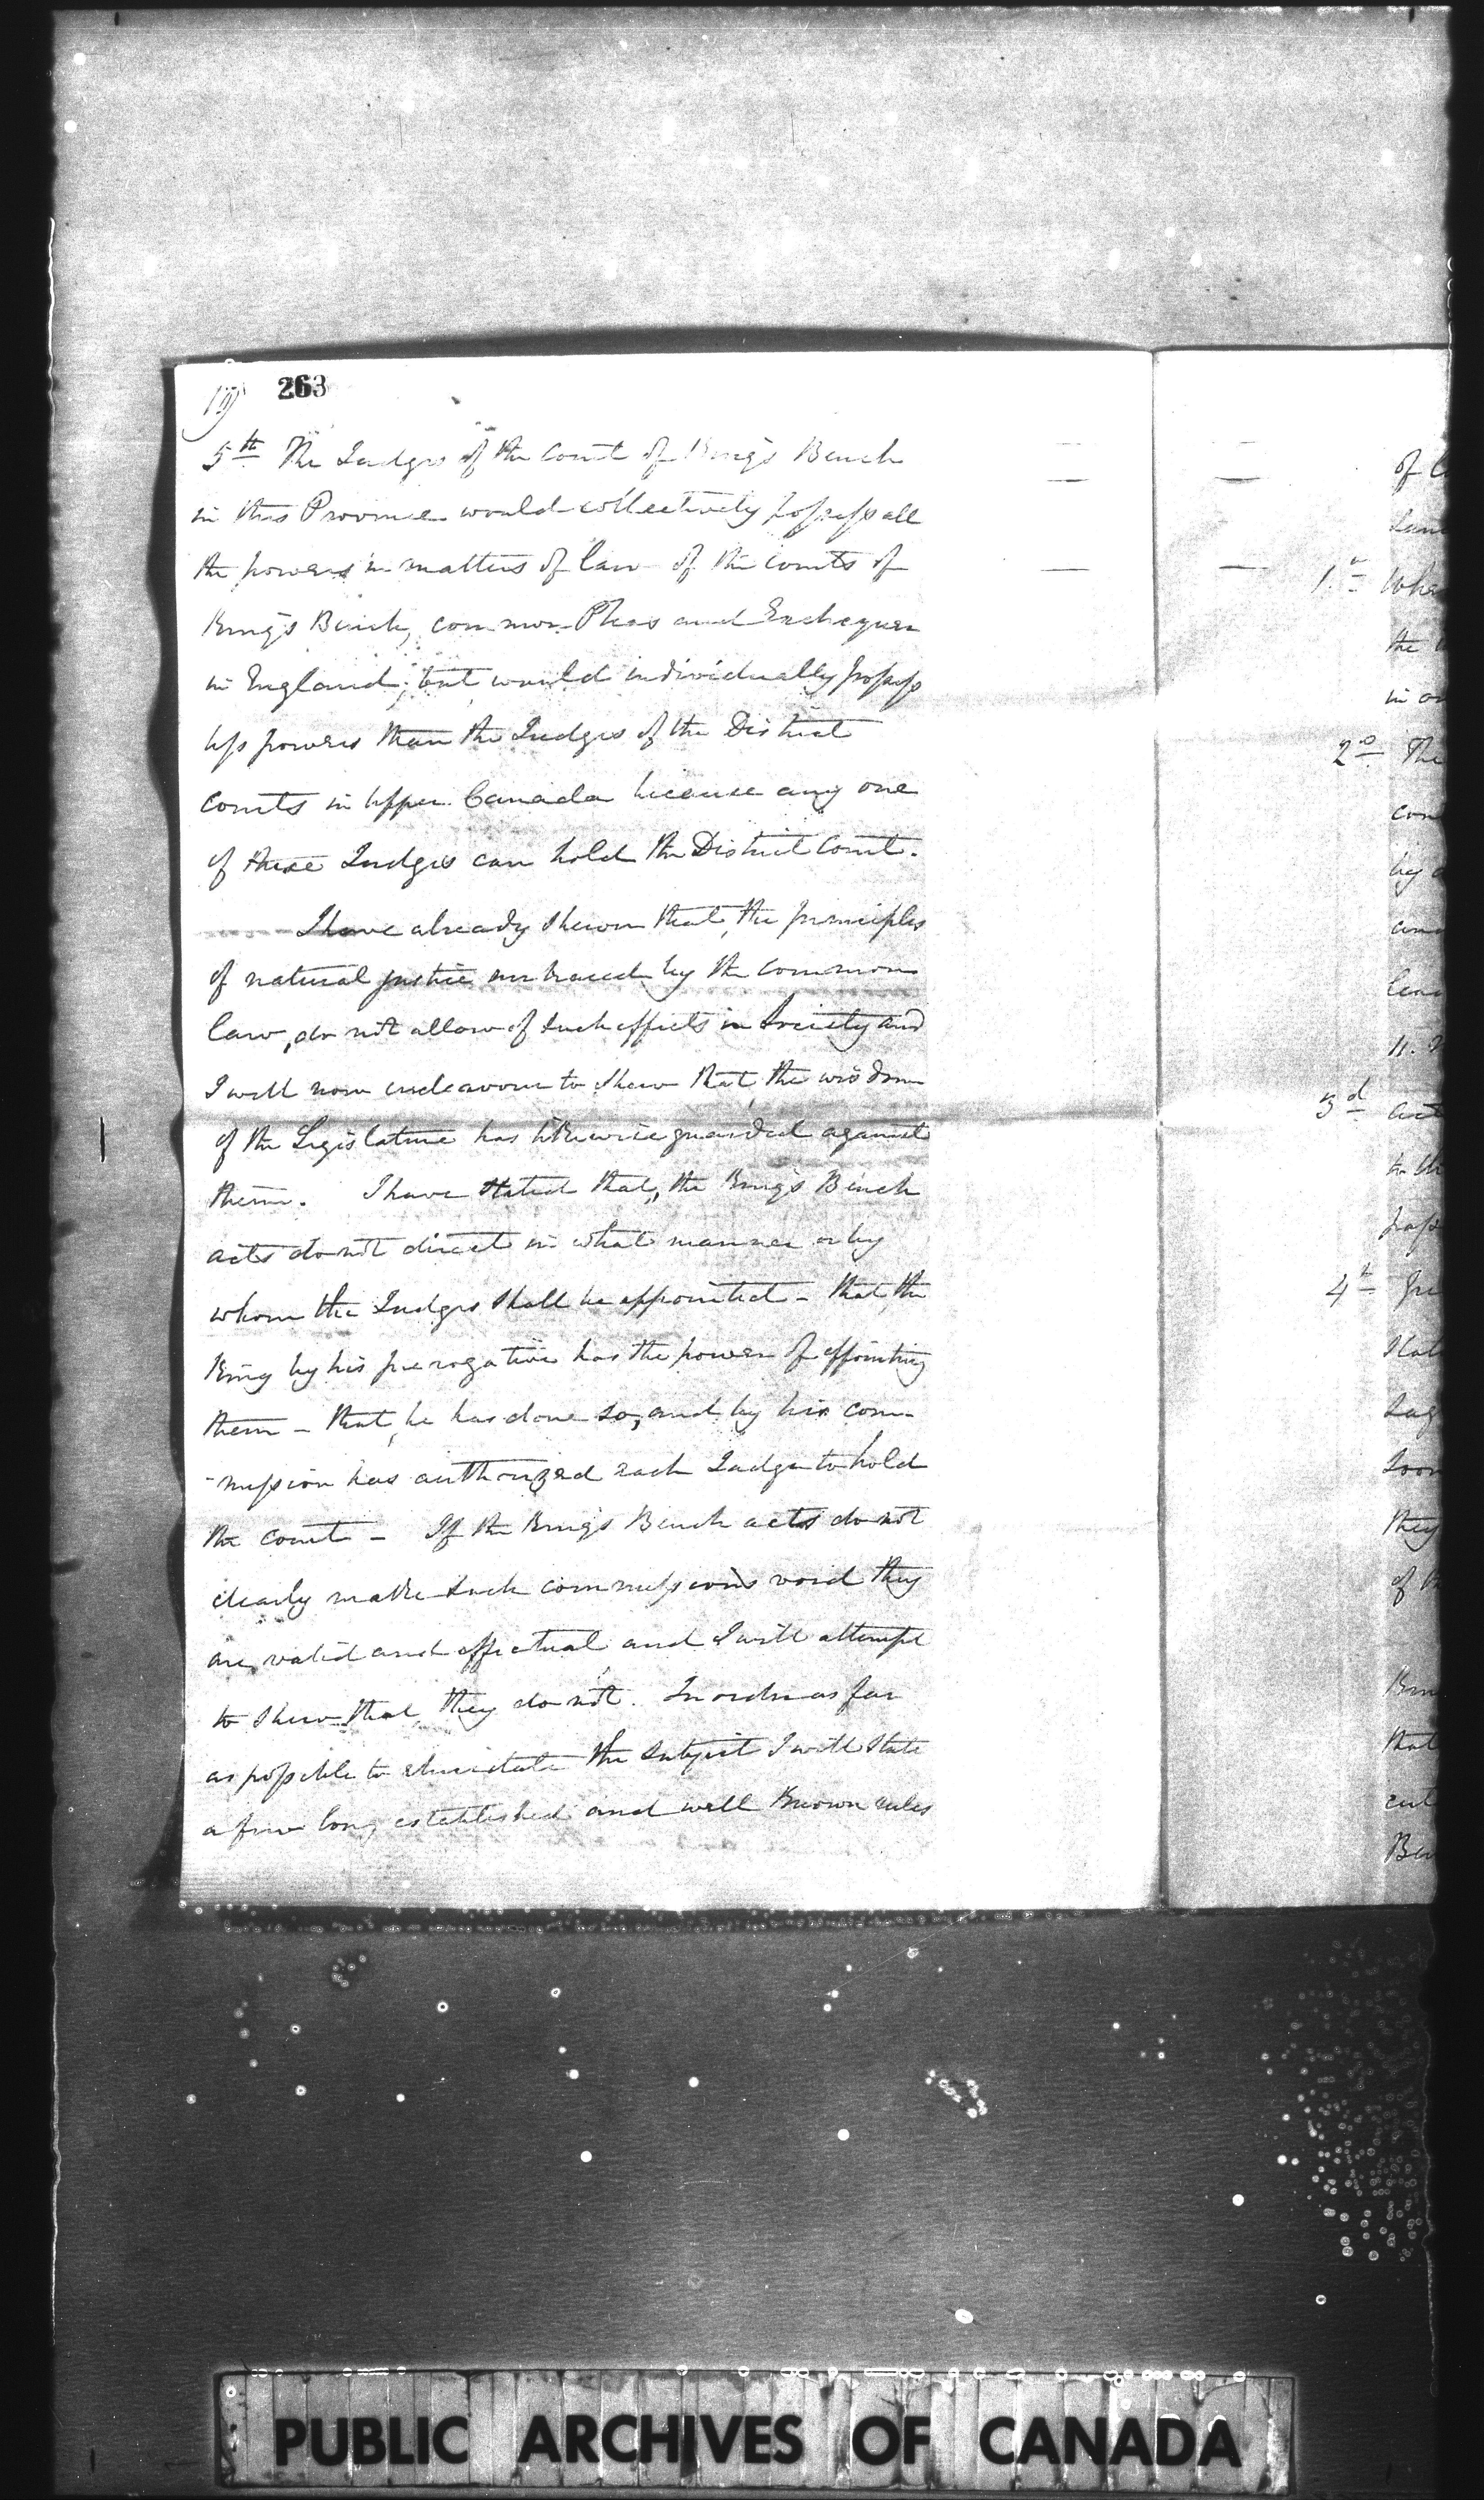 19) 263
5th The Judges of the Court of King's Bench
in this Province would collectively possess all
the powers in matters of law of the courts of
King's Bench, common Pleas and Exchequer
in England; but would individually possess
less powers than the Judges of the District
courts in Upper Canada because any one
of these Judges can hold the District Court.
I have already shewn that, the principles
of natural justice embraced by the common
law, do not allow of such effects in Society and
I will now endeavour to shew that, the wisdom
of the Legislature has likewise guarded against
them. I have stated that, the King's Bench
acts do not direct in what manner or by
whom the Judges shall be appointed - that, the
King by his prerogative has the power of appointing
them - that, he has done so, and by his com-
-mission has authorized each Judge to hold
the court - If the King's Bench acts do not
clearly make such commissions void they
are valid and effectual and I will attempt
to shew that, they do not. In order as far
as possible to elucidate the subject I will state
a few long established and well known rules
of
1.
the
in
2o The
by
3d act
4th
they
of
that
PUBLIC ARCHIVES OF CANADA